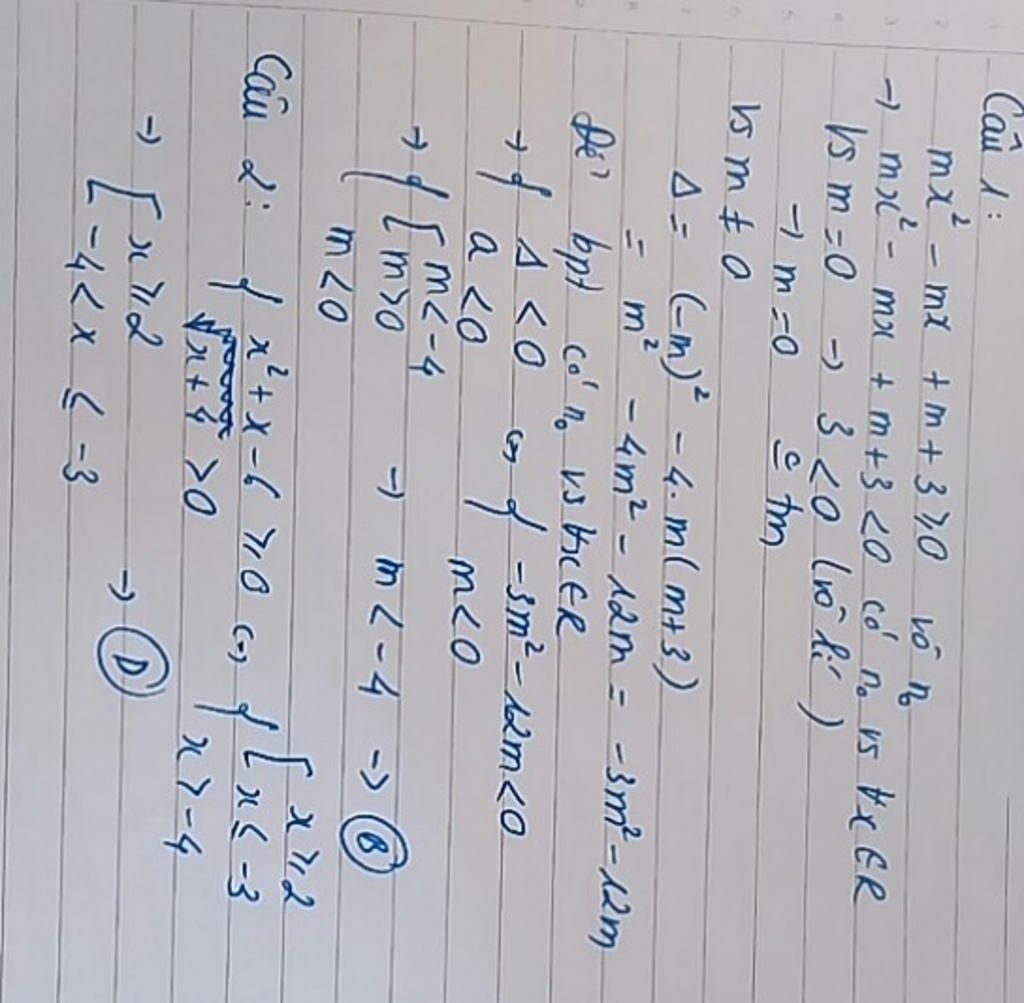 Câu 1:
mx² - mx + m + 3 ≥ 0 vô n₀
→ mx² - mx + m + 3 < 0 có n₀ vs ∀x ∈ R
Vs m = 0 → 3 < 0 (vô lí)
→ m = 0 c̲ tm
vs m ≠ 0
Δ = (-m)² - 4.m(m+3)
= m² - 4m² - 12m = -3m² - 12m
Để bpt có n₀ vs ∀x ∈ R
→ { Δ < 0 ⇔ { -3m² - 12m < 0
a < 0 m < 0
→ { [ m < -4
[ m > 0 → m < -4 → B
m < 0
Câu 2: { x² + x - 6 ≥ 0 ⇔ { [ x ≥ 2
[ x ≤ -3
x + 4 > 0 x > -4
→ [ x ≥ 2
-4 < x ≤ -3 → D